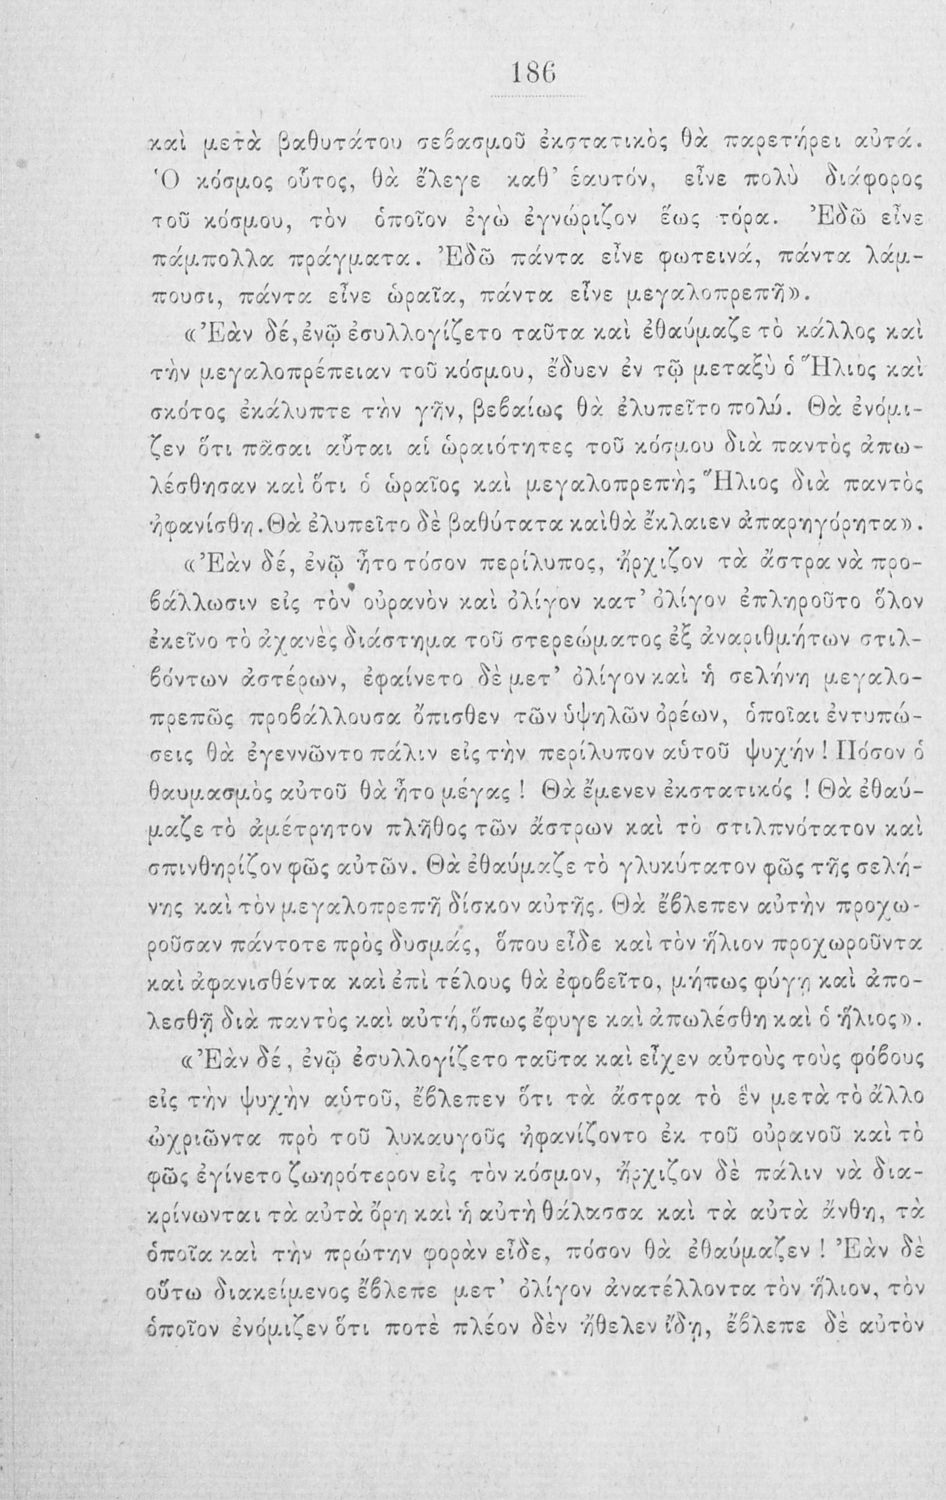 186
καὶ μετὰ βαθυτάτου σεβασμοῦ ἐκστατικὸς θὰ παρετήρει αὐτά.
Ὁ κόσμος οὗτος, θὰ ἔλεγε καθ’ ἑαυτόν, εἶνε πολὺ διάφορος
τοῦ κόσμου, τὸν ὁποῖον ἐγὼ ἐγνώριζον ἕως τόρα. Ἐδῶ εἶνε
πάμπολλα πράγματα. Ἐδῶ πάντα εἶνε φωτεινά, πάντα λάμ-
πουσι, πάντα εἶνε ὡραῖα, πάντα εἶνε μεγαλοπρεπῆ».
«Ἐὰν δέ, ἐνῷ ἐσυλλογίζετο ταῦτα καὶ ἐθαύμαζε τὸ κάλλος καὶ
τὴν μεγαλοπρέπειαν τοῦ κόσμου, ἔδυεν ἐν τῷ μεταξὺ ὁ Ἥλιος καὶ
σκότος ἐκάλυπτε τὴν γῆν, βεβαίως θὰ ἐλυπεῖτο πολύ. Θὰ ἐνόμι-
ζεν ὅτι πᾶσαι αὗται αἱ ὡραιότητες τοῦ κόσμου διὰ παντὸς ἀπω-
λέσθησαν καὶ ὅτι ὁ ὡραῖος καὶ μεγαλοπρεπὴς Ἥλιος διὰ παντὸς
ἠφανίσθη. Θὰ ἐλυπεῖτο δὲ βαθύτατα καὶ θὰ ἔκλαιεν ἀπαρηγόρητα».
«Ἐὰν δέ, ἐνῷ ἦτο τόσον περίλυπος, ἤρχιζον τὰ ἄστρα νὰ προ-
βάλλωσιν εἰς τὸν οὐρανὸν καὶ ὀλίγον κατ’ ὀλίγον ἐπληροῦτο ὅλον
ἐκεῖνο τὸ ἀχανὲς διάστημα τοῦ στερεώματος ἐξ ἀναριθμήτων στιλ-
βόντων ἀστέρων, ἐφαίνετο δὲ μετ’ ὀλίγον καὶ ἡ σελήνη μεγαλο-
πρεπῶς προβάλλουσα ὄπισθεν τῶν ὑψηλῶν ὀρέων, ὁποῖαι ἐντυπώ-
σεις θὰ ἐγεννῶντο πάλιν εἰς τὴν περίλυπον αὑτοῦ ψυχήν! Πόσον ὁ
θαυμασμὸς αὐτοῦ θὰ ἦτο μέγας! Θὰ ἔμενεν ἐκστατικός! Θὰ ἐθαύ-
μαζε τὸ ἀμέτρητον πλῆθος τῶν ἄστρων καὶ τὸ στιλπνότατον καὶ
σπινθηρίζον φῶς αὐτῶν. Θὰ ἐθαύμαζε τὸ γλυκύτατον φῶς τῆς σελή-
νης καὶ τὸν μεγαλοπρεπῆ δίσκον αὐτῆς. Θὰ ἔβλεπεν αὐτὴν προχω-
ροῦσαν πάντοτε πρὸς δυσμάς, ὅπου εἶδε καὶ τὸν ἥλιον προχωροῦντα
καὶ ἀφανισθέντα καὶ ἐπὶ τέλους θὰ ἐφοβεῖτο, μήπως φύγῃ καὶ ἀπο-
λεσθῇ διὰ παντὸς καὶ αὐτή, ὅπως ἔφυγε καὶ ἀπωλέσθη καὶ ὁ ἥλιος».
«Ἐὰν δέ, ἐνῷ ἐσυλλογίζετο ταῦτα καὶ εἶχεν αὐτοὺς τοὺς φόβους
εἰς τὴν ψυχὴν αὑτοῦ, ἔβλεπεν ὅτι τὰ ἄστρα τὸ ἓν μετὰ τὸ ἄλλο
ὠχριῶντα πρὸ τοῦ λυκαυγοῦς ἠφανίζοντο ἐκ τοῦ οὐρανοῦ καὶ τὸ
φῶς ἐγίνετο ζωηρότερον εἰς τὸν κόσμον, ἤρχιζον δὲ πάλιν νὰ δια-
κρίνωνται τὰ αὐτὰ ὄρη καὶ ἡ αὐτὴ θάλασσα καὶ τὰ αὐτὰ ἄνθη, τὰ
ὁποῖα καὶ τὴν πρώτην φορὰν εἶδε, πόσον θὰ ἐθαύμαζεν! Ἐὰν δὲ
οὕτω διακείμενος ἔβλεπε μετ’ ὀλίγον ἀνατέλλοντα τὸν ἥλιον, τὸν
ὁποῖον ἐνόμιζεν ὅτι ποτὲ πλέον δὲν ἤθελεν ἴδῃ, ἔβλεπε δὲ αὐτὸν